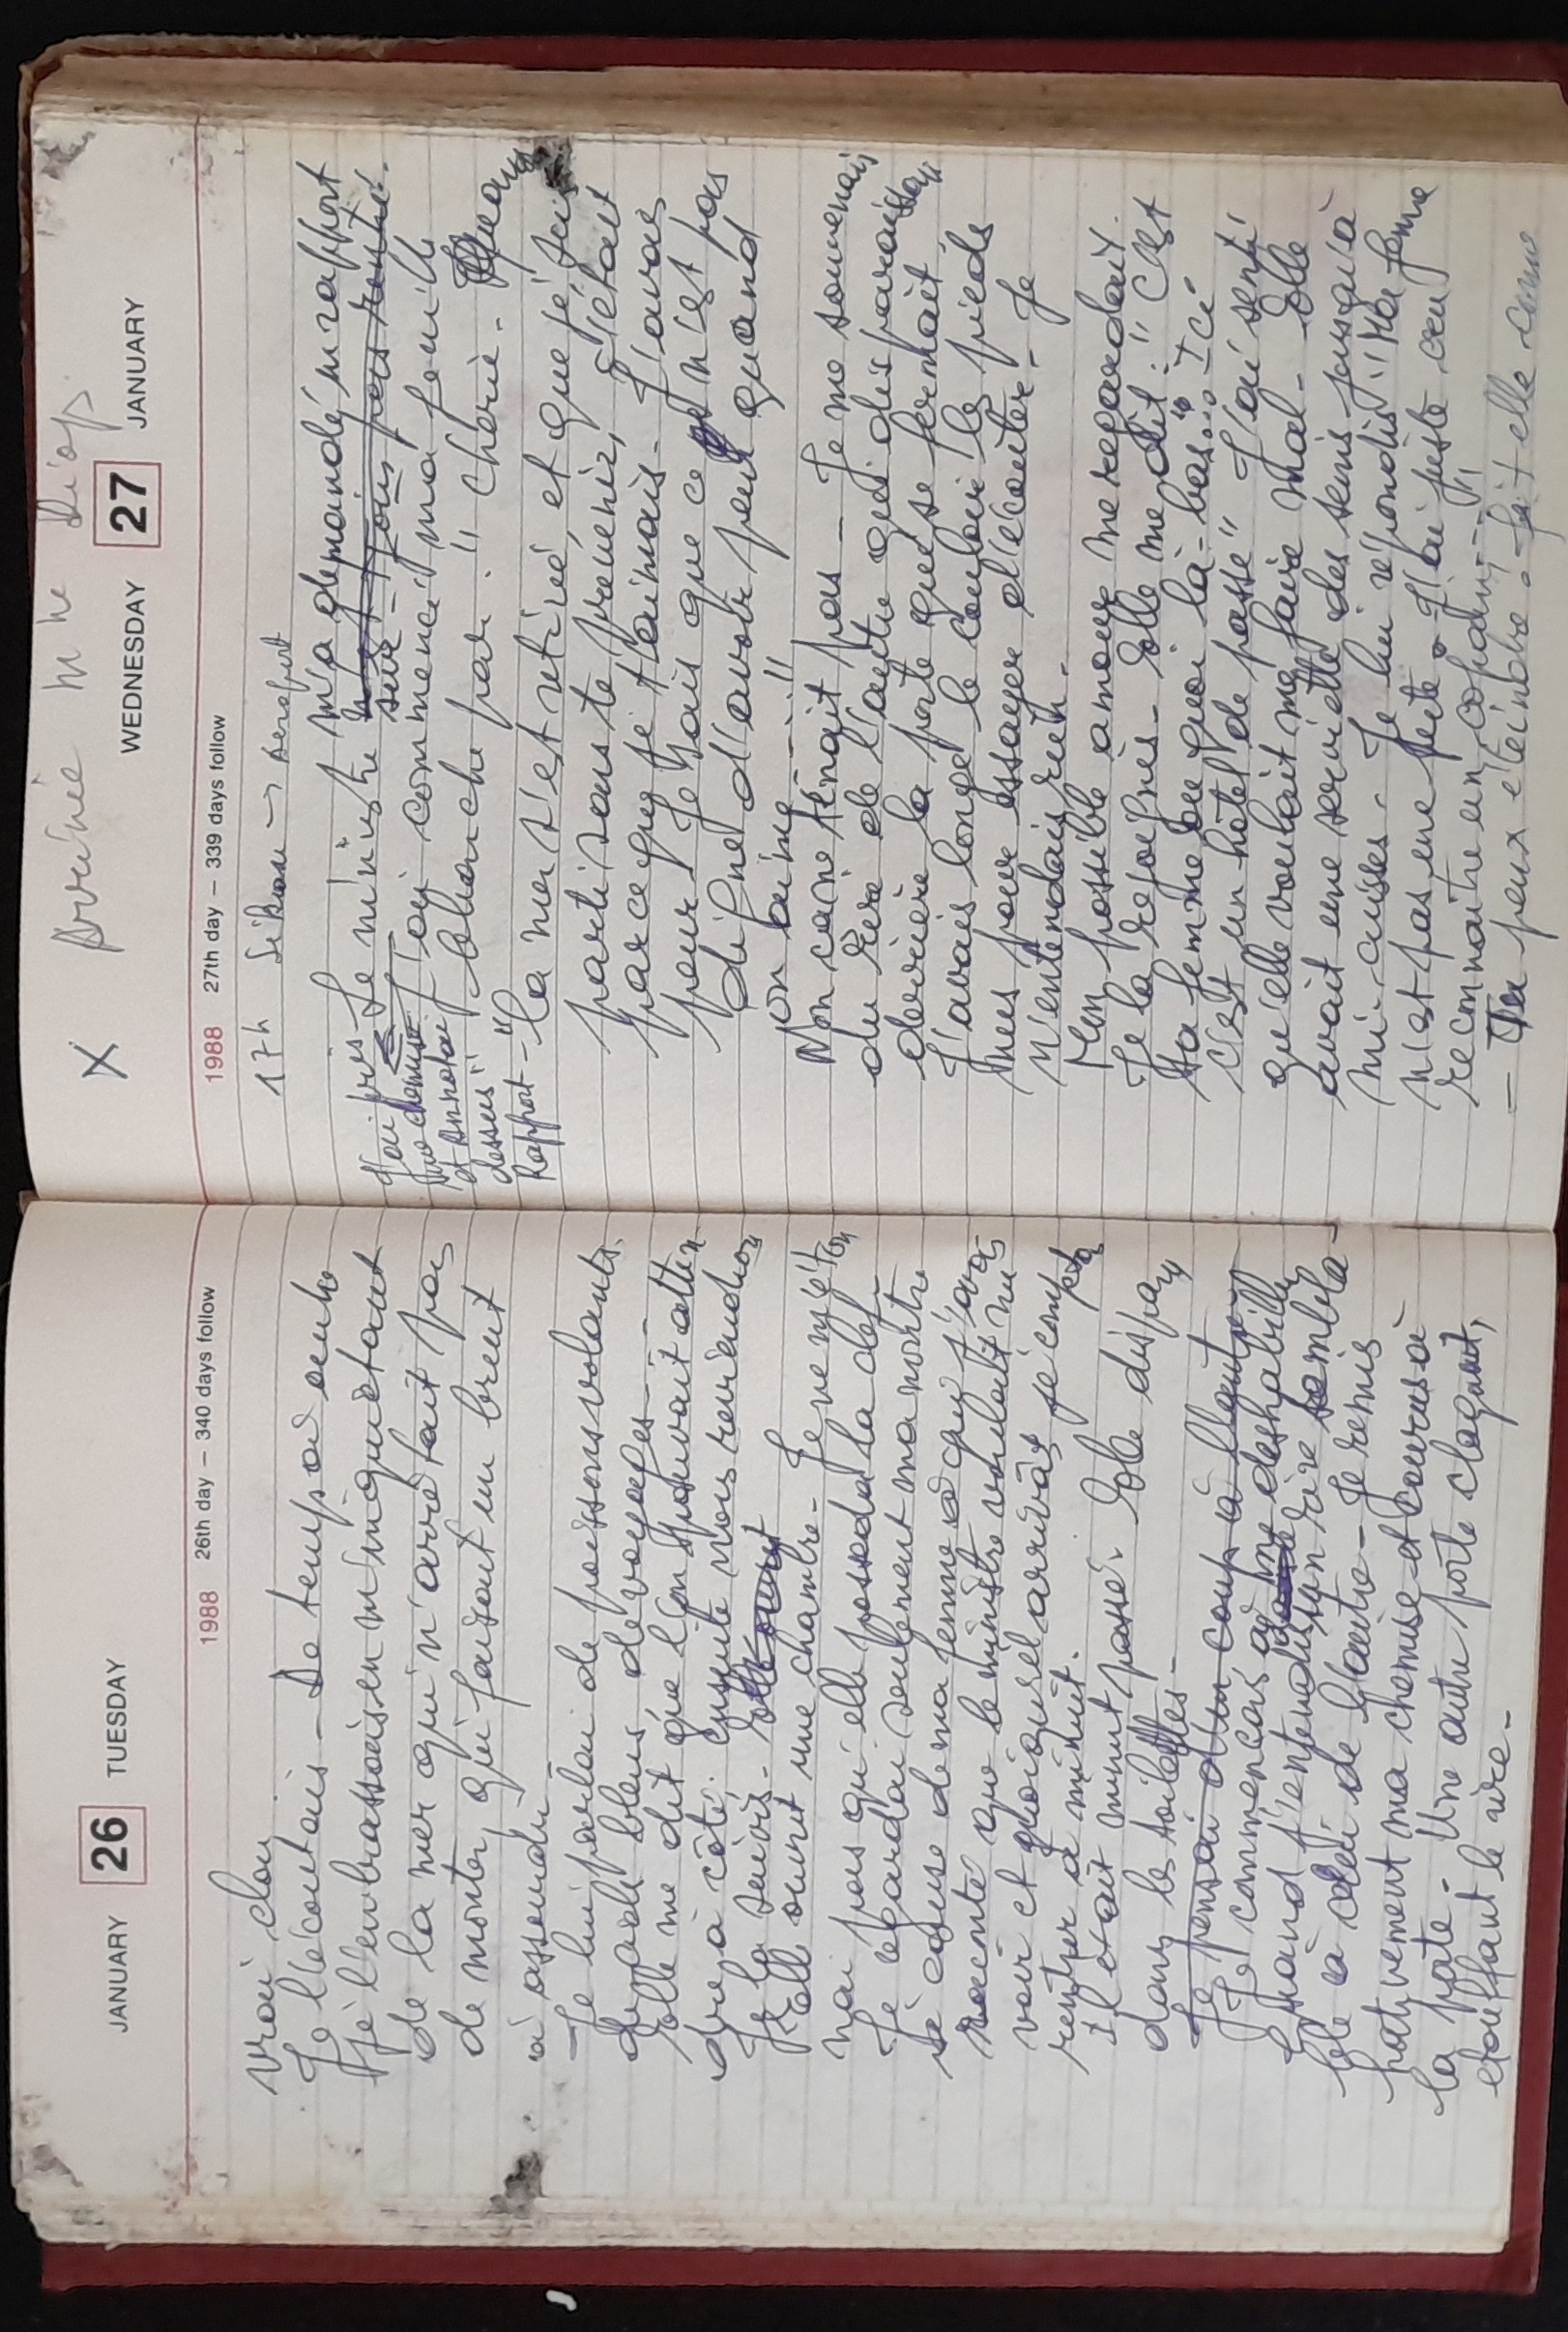 JANUARY 26 TUESDAY
1988 26th day – 340 days follow
vrai clou
Je l'écoutais - De temps à autre
je l'embrassais en m'inquiétant
de la mer qui n'arrêtait pas
de monter, qui faisait un bruit
à assourdir
- Je lui parlai de poissons volants.
de sable bleus, de voyages - -
Elle me dit que l'on pouvait atten
dre à côté. ensuite nous reviendrons
Je la suivis. Elle ouvrit
Elle ouvrit une chambre - Je ne m'éton
nai pas qu'elle posseda la clef -
Je regardai seulement ma montre
à cause de ma femme à qui j'avais
raconté que le ministre voulait me
voir et quoiqu'il arrivât je compta
rentrer à minuit.
Il était minuit passé. Elle disparu
dans les toilettes -
Je pensai d'un coup à l'autre
Je commençais à me deshabiller
quand j'entendis un rire sembla-
ble à celui de l'autre - Je remis
hativement ma chemise et courus à
la porte - Une autre porte claquait,
étouffant le rire -
X Arrivée Mme Diop
WEDNESDAY 27 JANUARY
1988 27th day – 339 days follow
17h Sikasso → aeroport
Le ministre m'a demandé un rapport
sur
J'ai pris
une chemise
et annotai
dessus
Rapport -
J'ai commencé ma feuille
blanche par : " Chérie -
"la mer s'est retiré, et que je suis
parti sans te prévenir, c'était
parce que je t'aimais - J'avais
peur, Je sais que ce n'est pas
digne d'avoir peur quand
on aime - - - !!
Mon cœur tenait pas - Je me souvenais
du rire de l'autre qui disparaissait
derrière la porte que se fermait.
J'avais longé le couloir les pieds
nus pour essayer d'écouter - Je
n'entendais rien -
Mon possible amour me regardait.
Je la rejoignis - Elle me dit : " C'est
ta femme ou quoi là-bas... Ici
c'est un hôtel de passe " J'ai senti
qu'elle voulait me faire mal - Elle
avait une serviette des seins jusqu'à
mi-cuisses. Je lui répondis " Ma femme
n'est pas une pute. J'ai juste cru
reconnaitre un copain - - "
- Tu peux éteindre - fait elle comme